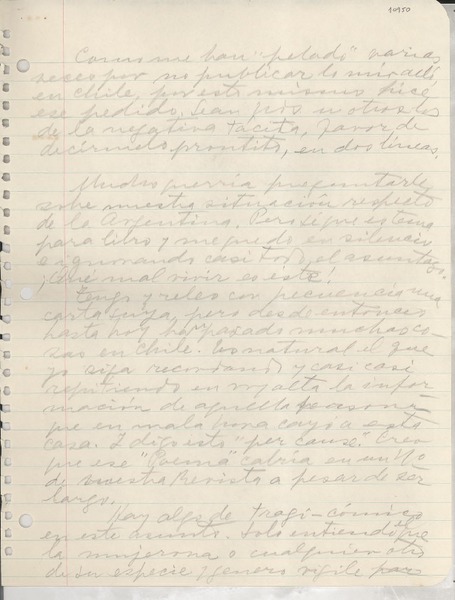 10950
Como me han "pelado" varias
veces por no publicar lo mío allí,
en Chile, por esto mismo hice
ese pedido. Sean Uds. u otros los
de la negativa tácita, favor de
decírmelo prontito, en dos líneas.
Mucho querría preguntarle
sobre nuestra situación respecto
de la Argentina. Pero sigue es tema
para libro y me quedo en silencio
e ignorando casi todo el asunto.
¡Qué mal vivir es éste!
Tengo y releo con frecuencia una
carta suya, pero desde entonces
hasta hoy han pasado muchas co-
sas en Chile. Es natural el que
yo siga recordando y casi casi
repitiendo en voz alta la infor-
mación de aquella persona
que en mala hora cayó a esta
casa. I digo esto "per cause". Creo
que ese "Poema" cabría en un No
de nuestra Revista a pesar de ser
largo.
Hay algo de tragi-cómico
en este asunto. Solo entiendo el que
la mujerona o cualquier otro
de su especie y género vigile para